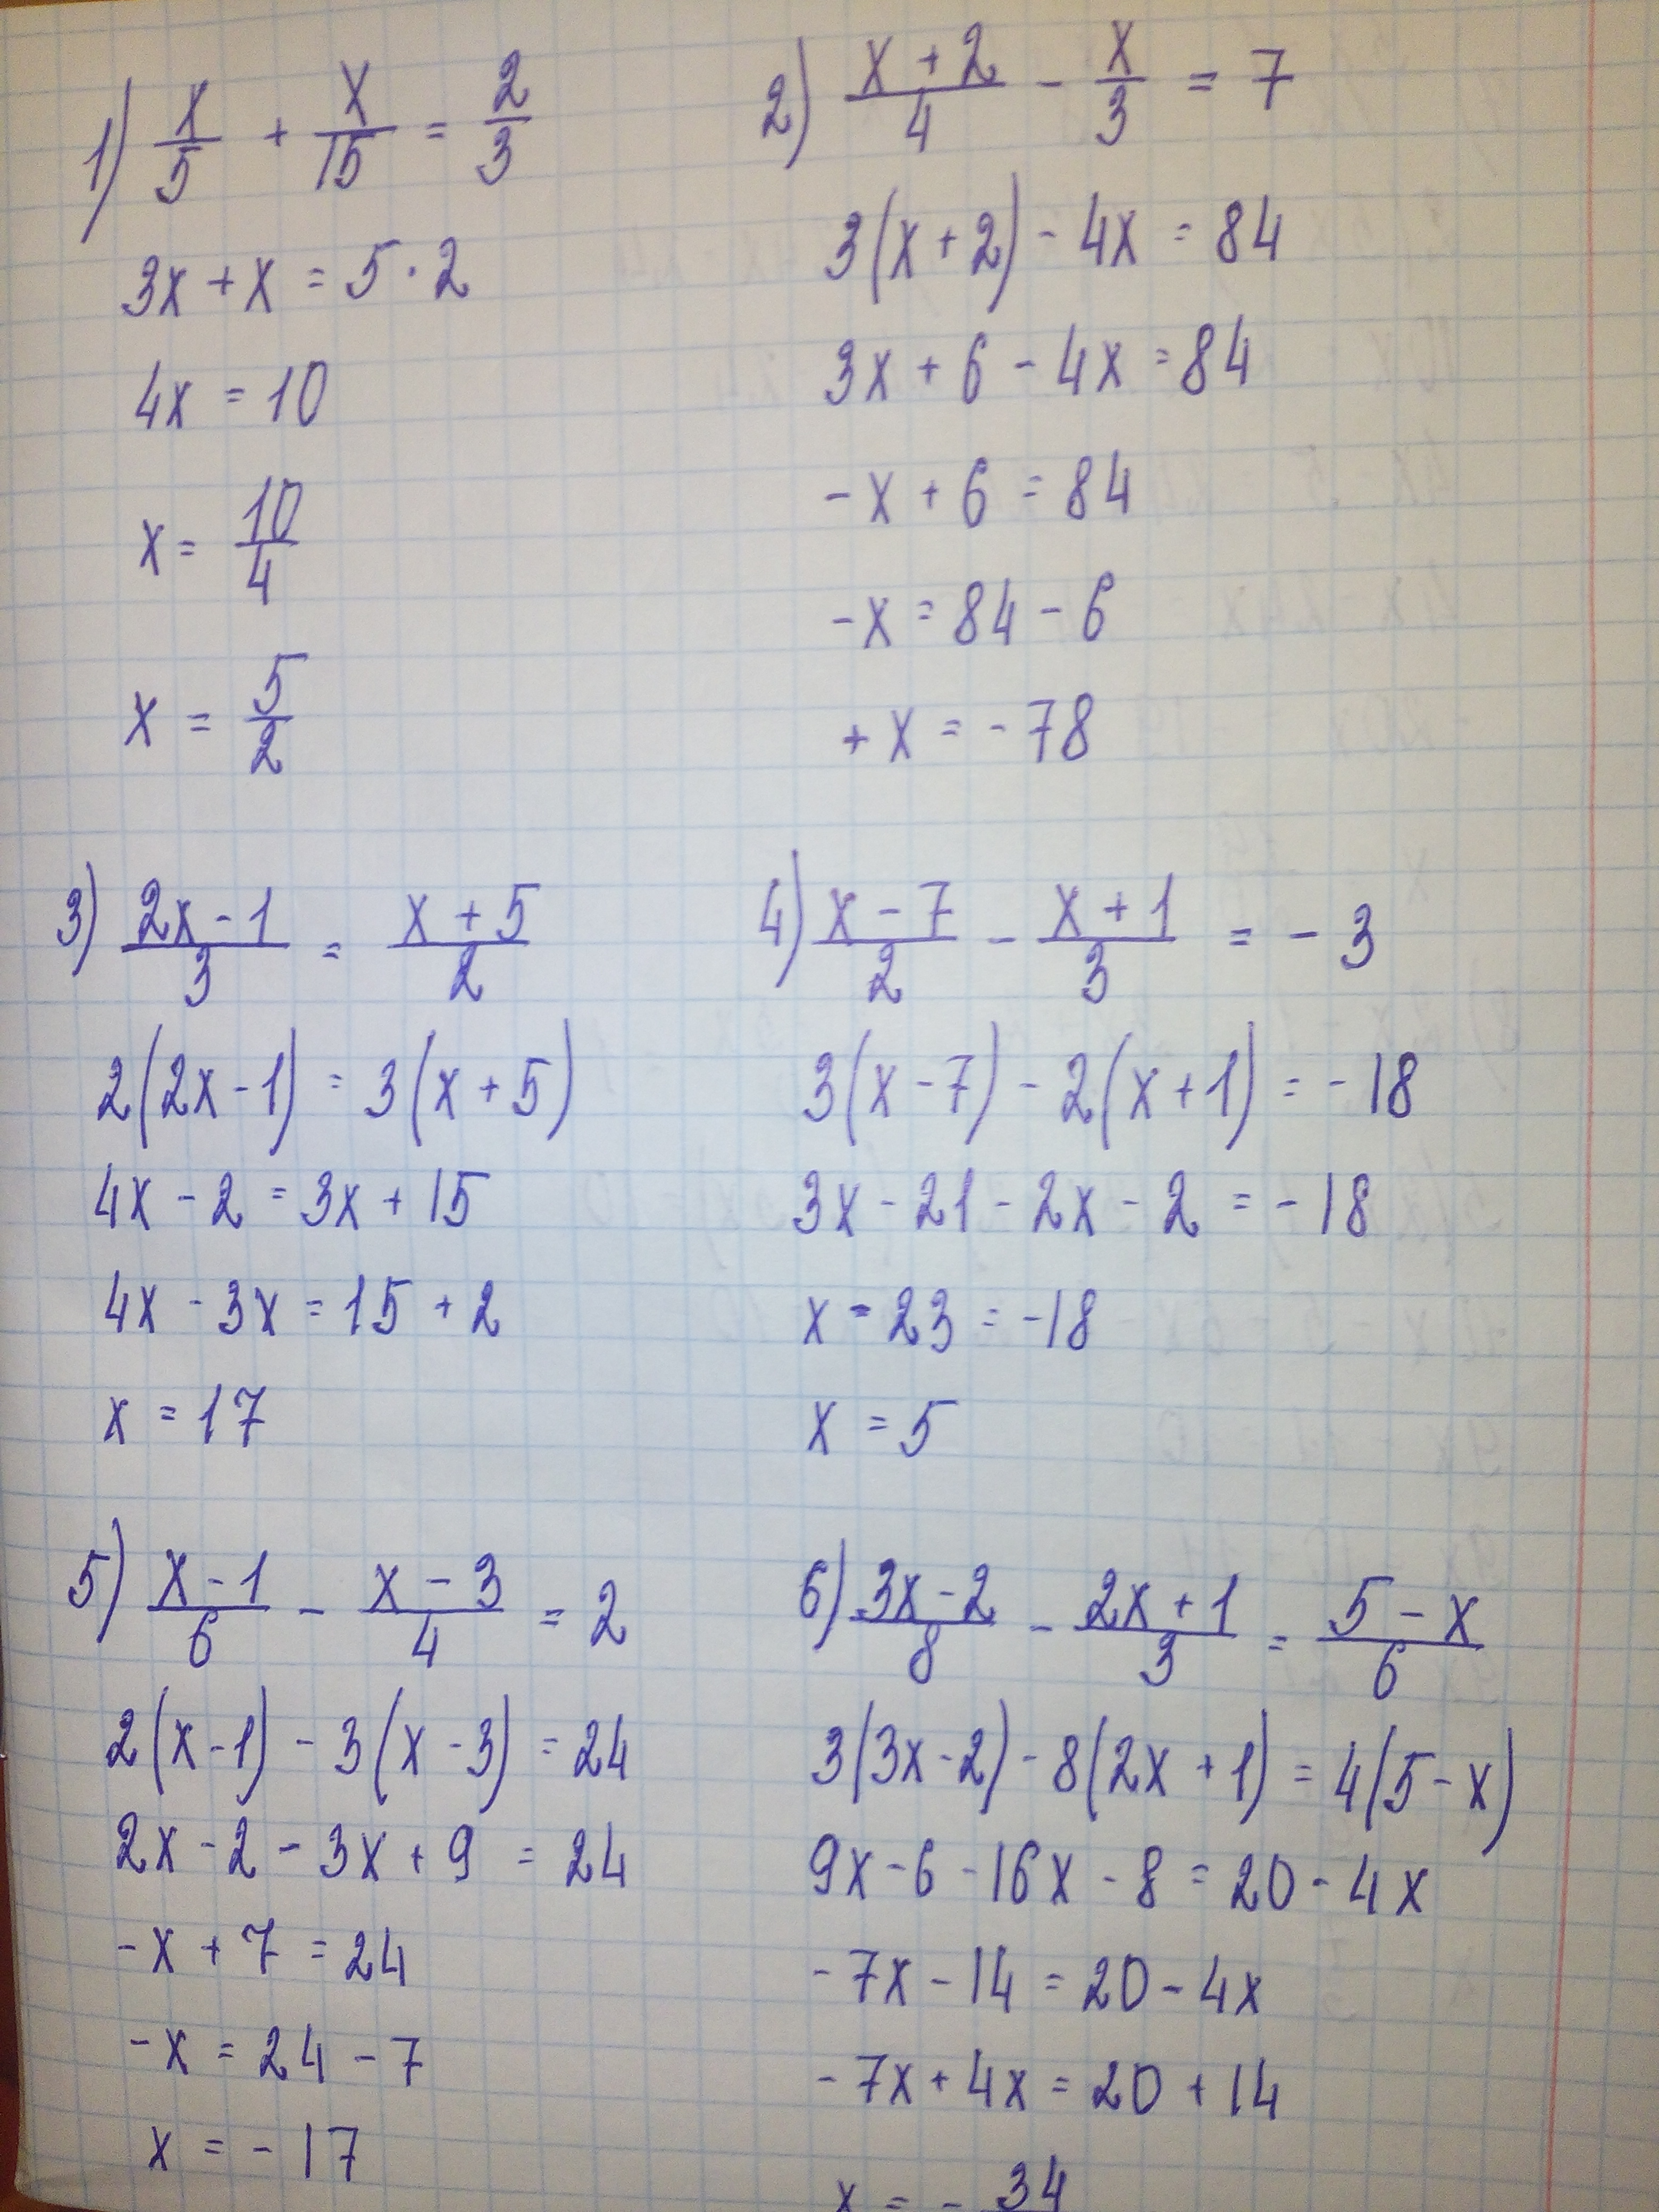 1) x/5 + x/15 = 2/3
3x + x = 5 · 2
4x = 10
x = 10/4
x = 5/2
2) (x + 2)/4 - x/3 = 7
3(x + 2) - 4x = 84
3x + 6 - 4x = 84
-x + 6 = 84
-x = 84 - 6
+x = -78
3) (2x - 1)/3 = (x + 5)/2
2(2x - 1) = 3(x + 5)
4x - 2 = 3x + 15
4x - 3x = 15 + 2
x = 17
4) (x - 7)/2 - (x + 1)/3 = -3
3(x - 7) - 2(x + 1) = -18
3x - 21 - 2x - 2 = -18
x - 23 = -18
x = 5
5) (x - 1)/6 - (x - 3)/4 = 2
2(x - 1) - 3(x - 3) = 24
2x - 2 - 3x + 9 = 24
-x + 7 = 24
-x = 24 - 7
x = -17
6) (3x - 2)/8 - (2x + 1)/3 = (5 - x)/6
3(3x - 2) - 8(2x + 1) = 4(5 - x)
9x - 6 - 16x - 8 = 20 - 4x
-7x - 14 = 20 - 4x
-7x + 4x = 20 + 14
x = - 34